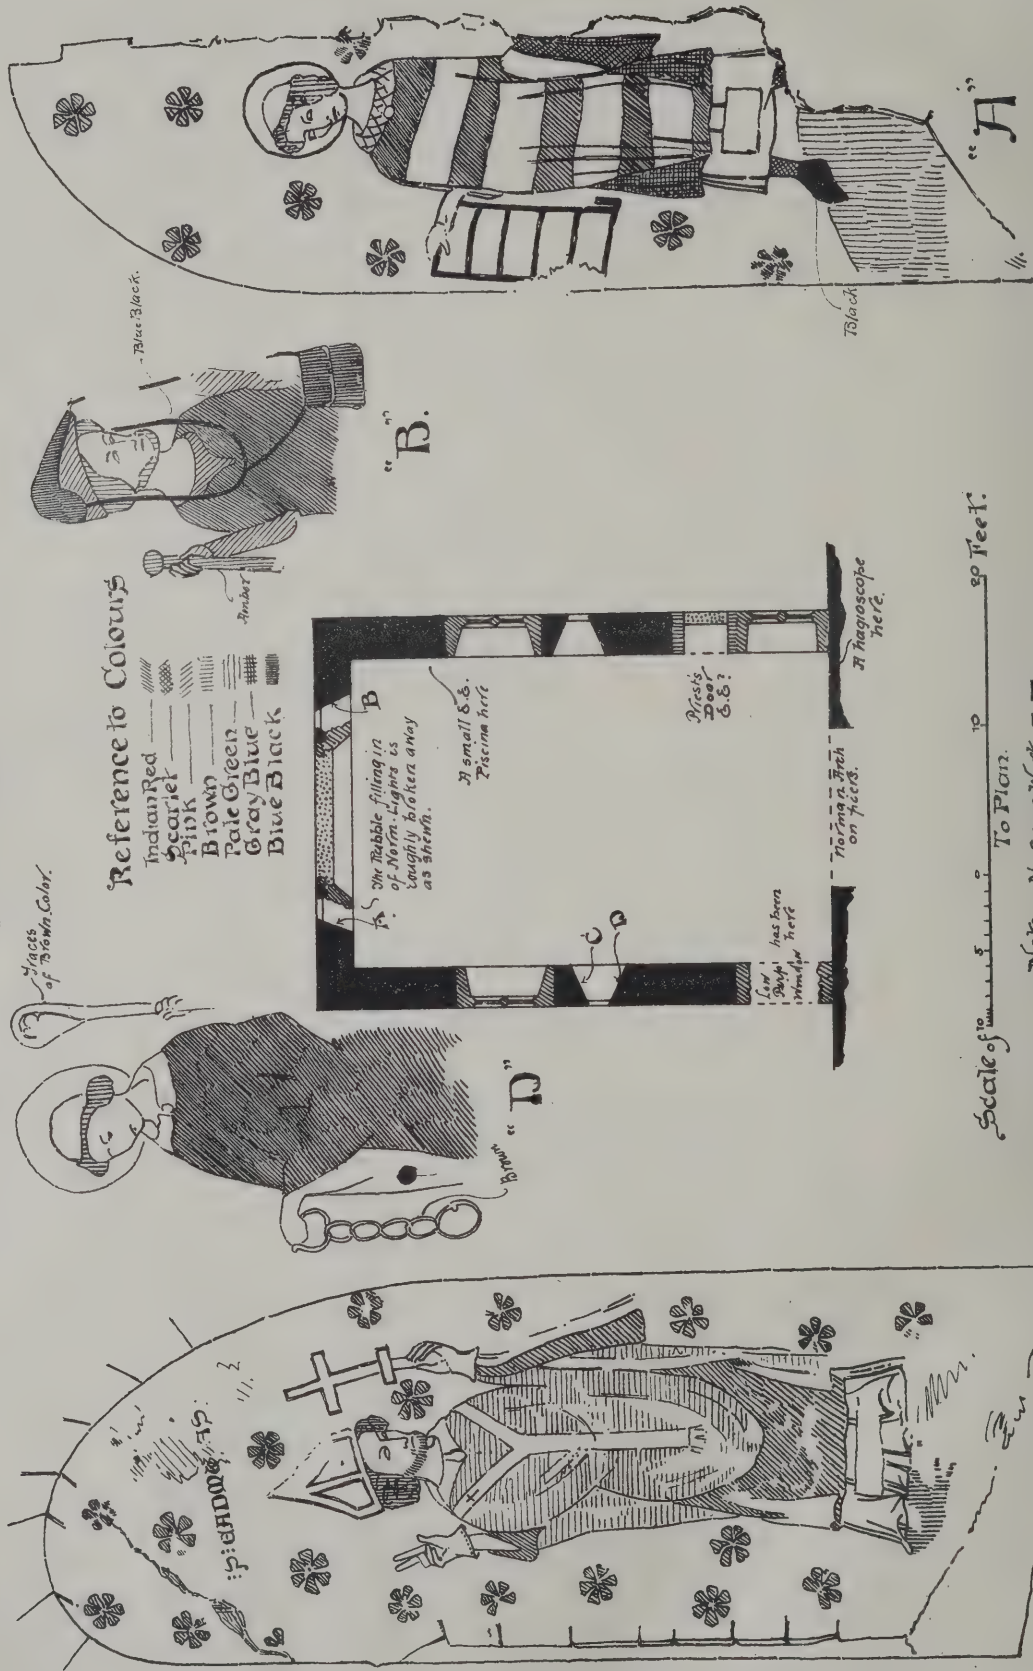 Traces
of Brown Color.
Reference to Colours
Indian Red
Scarlet
Pink
Brown
Pale Green
Gray Blue
Blue Black
Blue Black.
Amber
"B."
"A"
Black
"D"
Brown
A
The Rubble filling in
of Norm. Lights is
roughly broken away
as shewn.
B
A small E.E.
Piscina here
C
D
Priest's
Door
E.E?
Low
has been
Window here
Norman Arch
on piers.
A hagioscope
here.
Scale of 10 5 0 10 20 Feet.
To Plan.